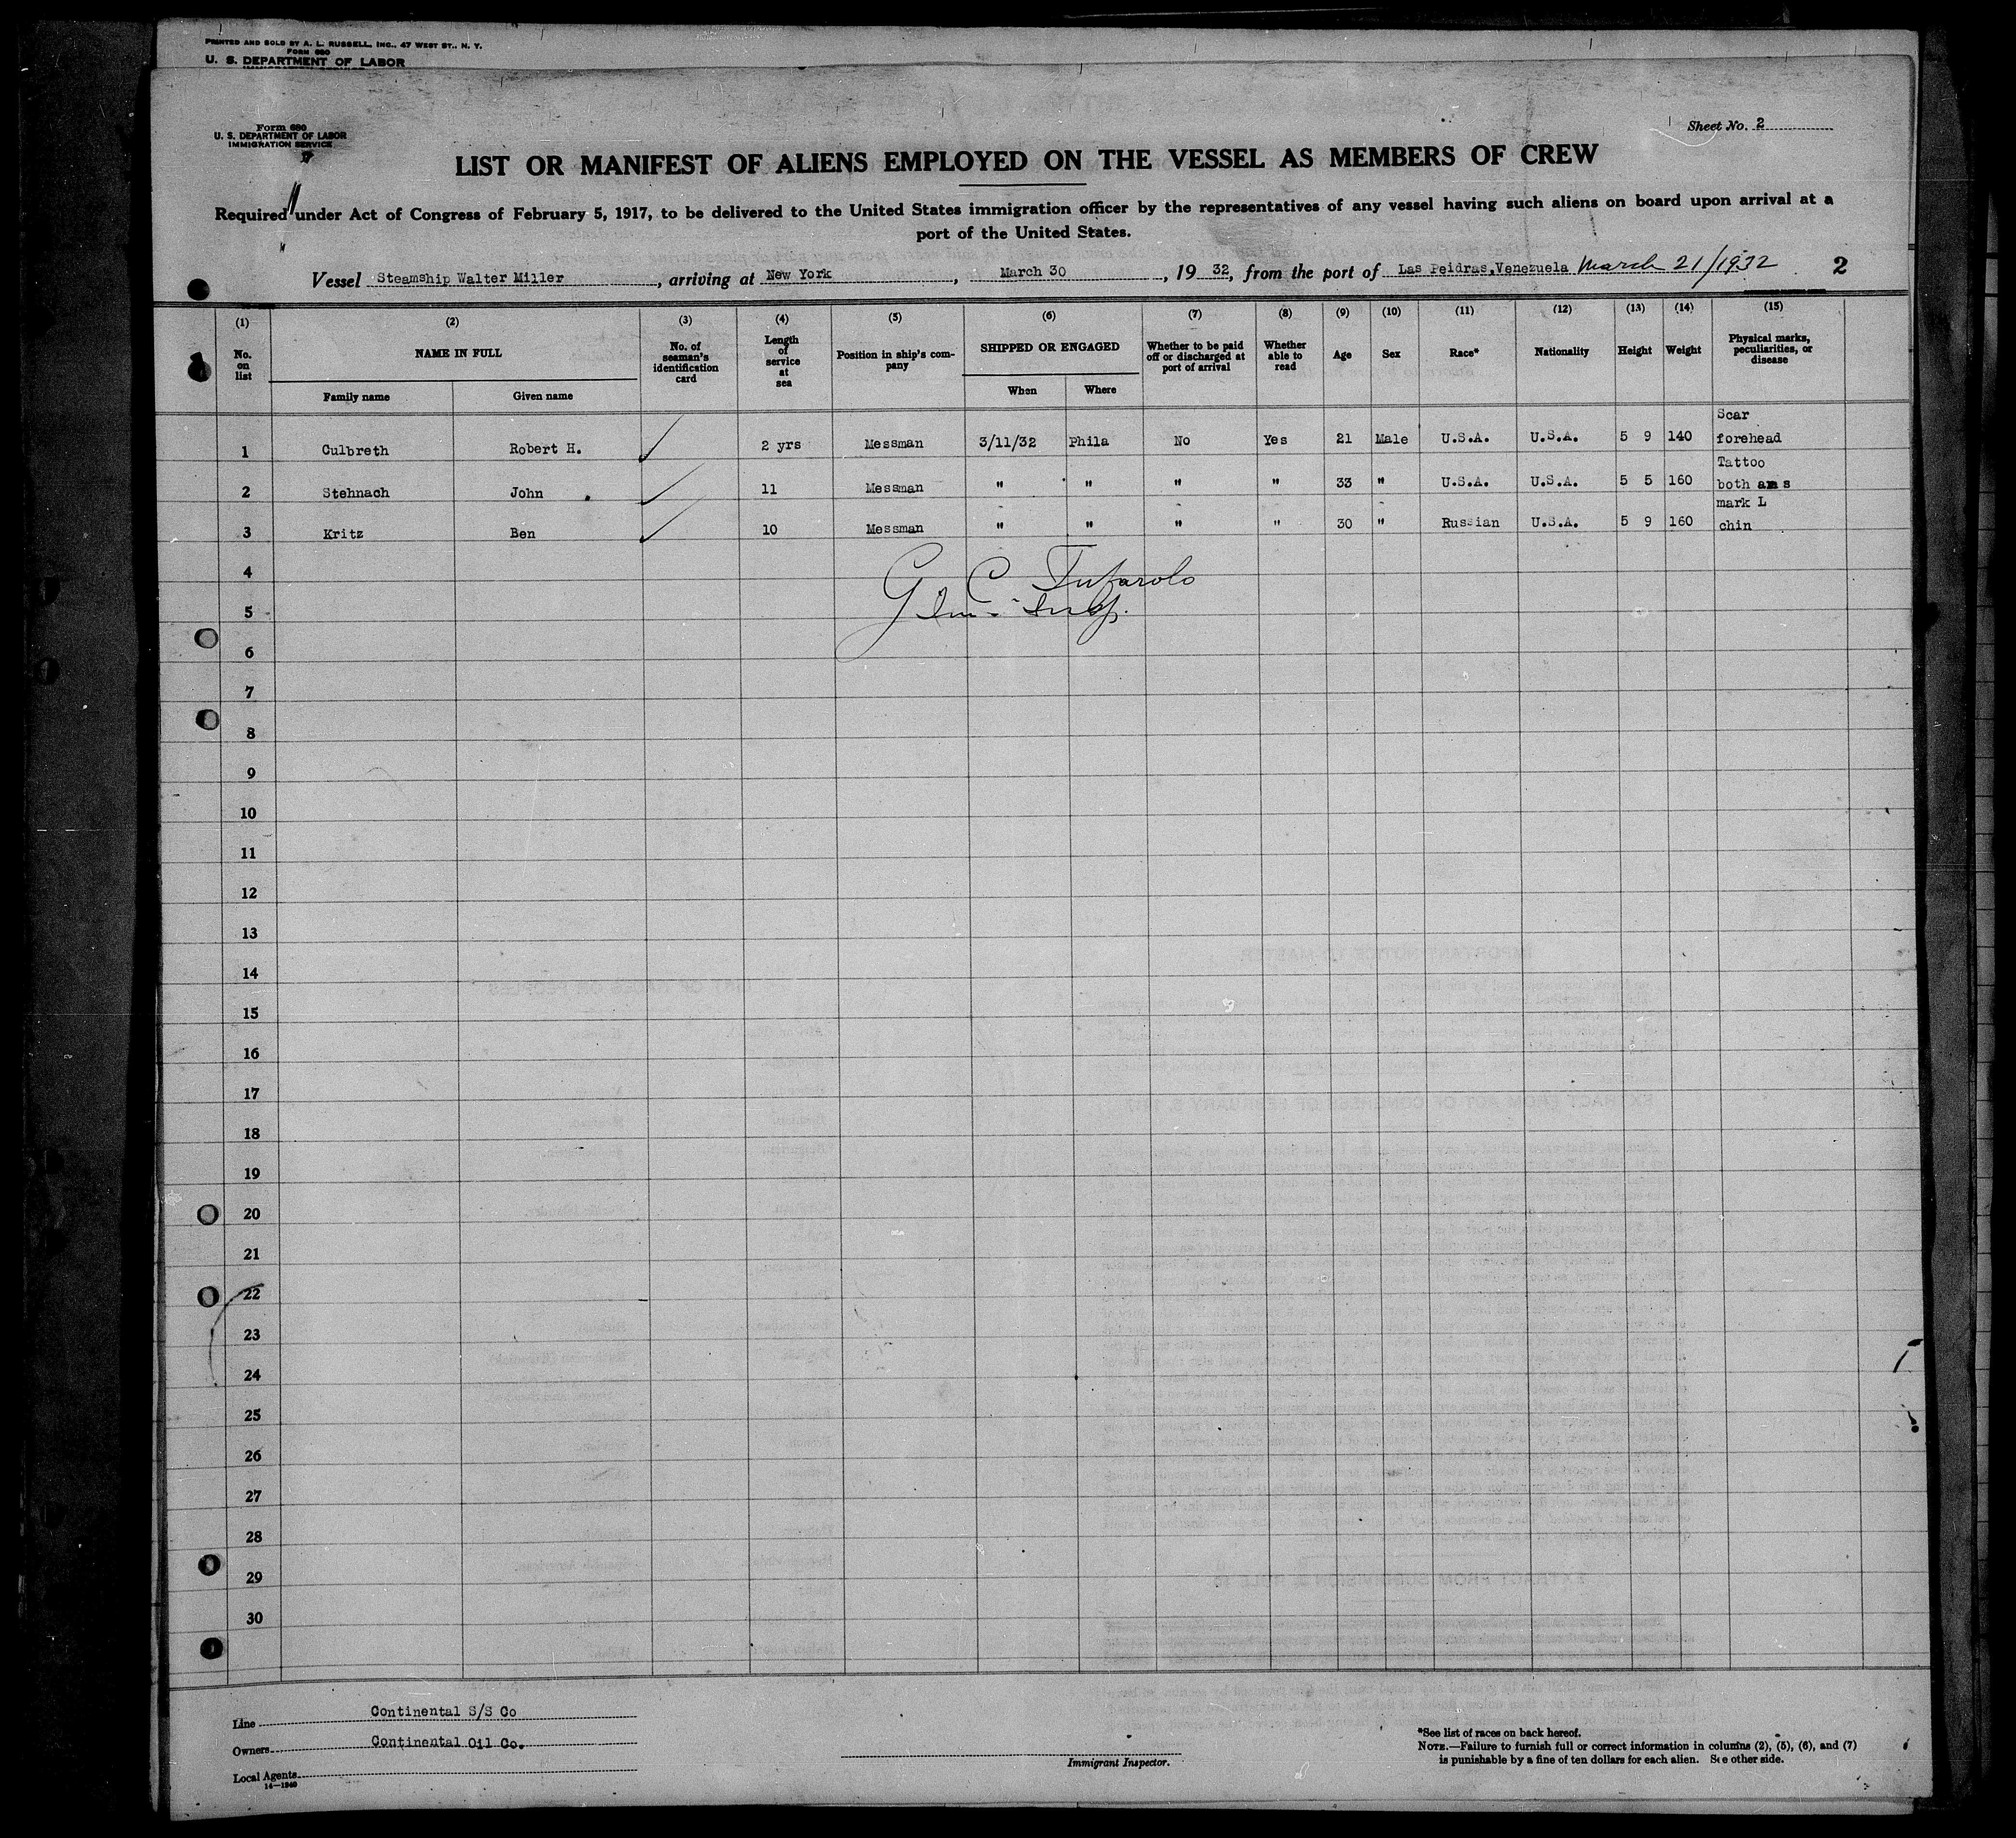 PRINTED AND SOLD BY A. L. RUSSELL, INC., 47 WEST ST., N. Y.
FORM 680
U. S. DEPARTMENT OF LABOR
Form 680
U. S. DEPARTMENT OF LABOR
IMMIGRATION SERVICE
Sheet No. 2
LIST OR MANIFEST OF ALIENS EMPLOYED ON THE VESSEL AS MEMBERS OF CREW
Required under Act of Congress of February 5, 1917, to be delivered to the United States immigration officer by the representatives of any vessel having such aliens on board upon arrival at a
port of the United States.
Vessel Steamship Walter Miller, arriving at New York, March 30, 19 32, from the port of Las Peidras,Venezuela March 21/1932 2
(1) (2) (3) (4) (5) (6) (7) (8) (9) (10) (11) (12) (13) (14) (15)
No. on list
NAME IN FULL
Family name
Given name
No. of seaman's identification card
Length of service at sea
Position in ship's company
SHIPPED OR ENGAGED
When
Where
Whether to be paid off or discharged at port of arrival
Whether able to read
Age
Sex
Race*
Nationality
Height
Weight
Physical marks, peculiarities, or disease
1 Culbreth Robert H. 2 yrs Messman 3/11/32 Phila No Yes 21 Male U.S.A. U.S.A. 5 9 140 Scar forehead
2 Stehnach John 11 Messman " " " " 33 " U.S.A. U.S.A. 5 5 160 Tattoo both ams
3 Kritz Ben 10 Messman " " " " 30 " Russian U.S.A. 5 9 160 mark L chin
4
G C
Imm. Insp.
5
6
7
8
9
10
11
12
13
14
15
16
17
18
19
20
21
22
23
24
25
26
27
28
29
30
Line Continental S/S Co
Owners Continental Oil Co.
Local Agents
14—1240
Immigrant Inspector.
*See list of races on back hereof.
NOTE.—Failure to furnish full or correct information in columns (2), (5), (6), and (7)
is punishable by a fine of ten dollars for each alien. See other side.